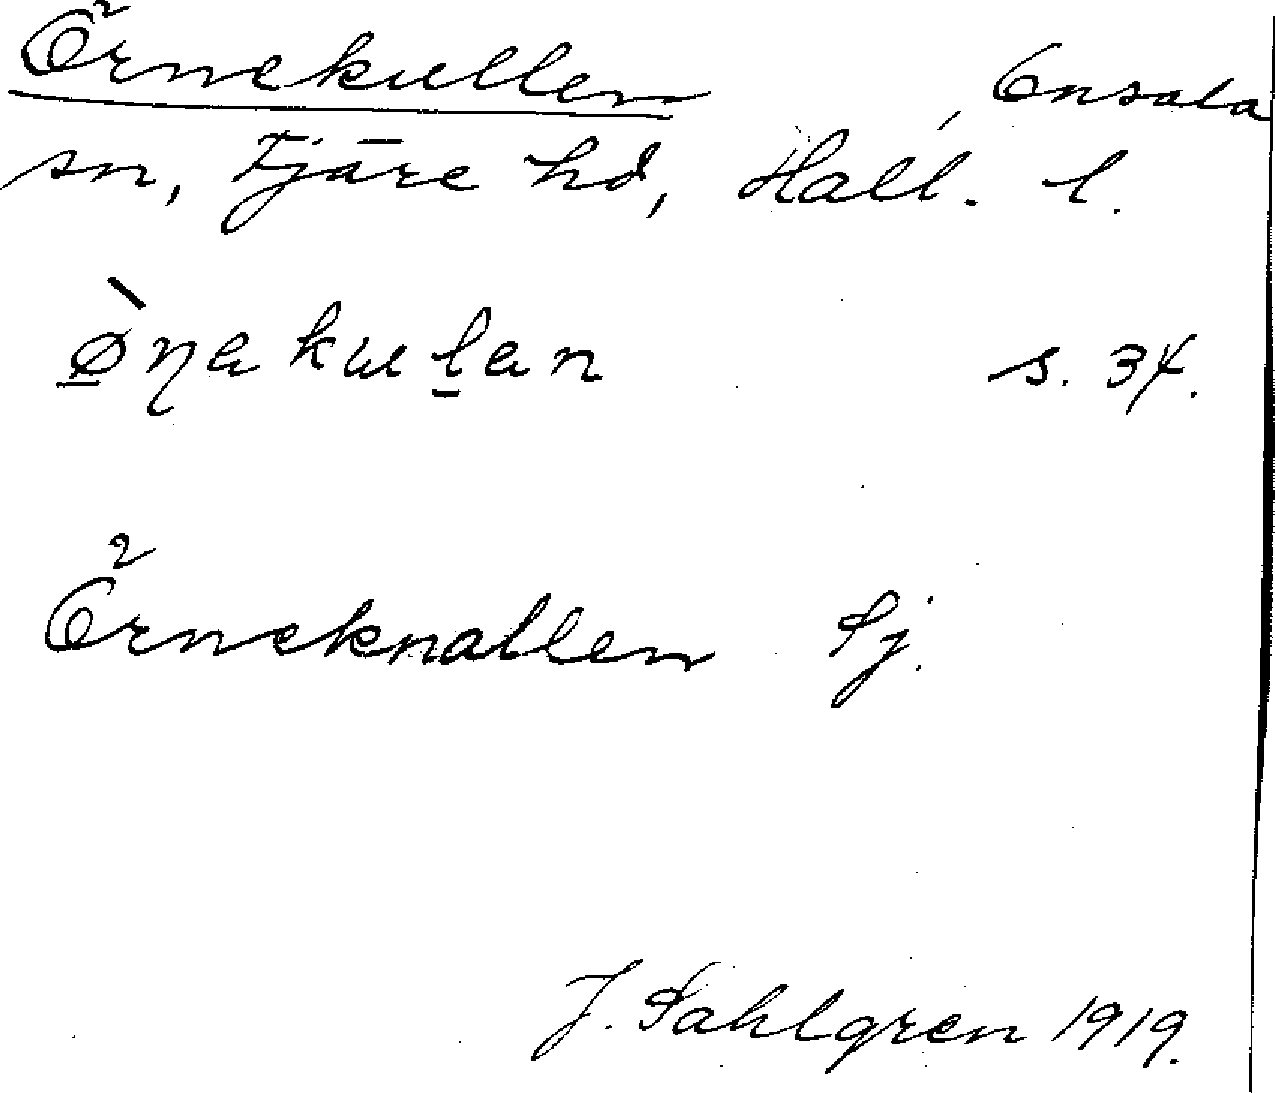 Örnekullen, Onsala
sn, Fjäre hd, Hall. l.
ø̀ɳakulan s. 34.
Örneknallen Sj.
J. Sahlgren 1919.